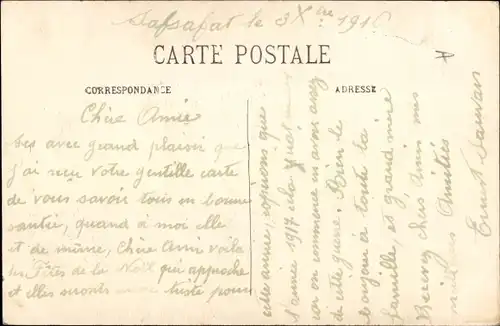 Safsafat le 3 Xbre 1916
CARTE POSTALE
CORRESPONDANCE
ADRESSE
Chère Amie
avec grand plaisir que
j'ai reçu votre gentille carte
de vous savoir tous en bonne
santée, quand à moi elle
et de même, Chère Ami voila
les Fêtes de la Noël qui approche
et elles seronts triste pour
cette année, espérons que
l'année 1917 sera
car on commence en avoir assez
de cette guerre. Bien le
bonjour à toute la
famille, et grand mère
Recevez chers Amis mes
Amitiés
Ernest